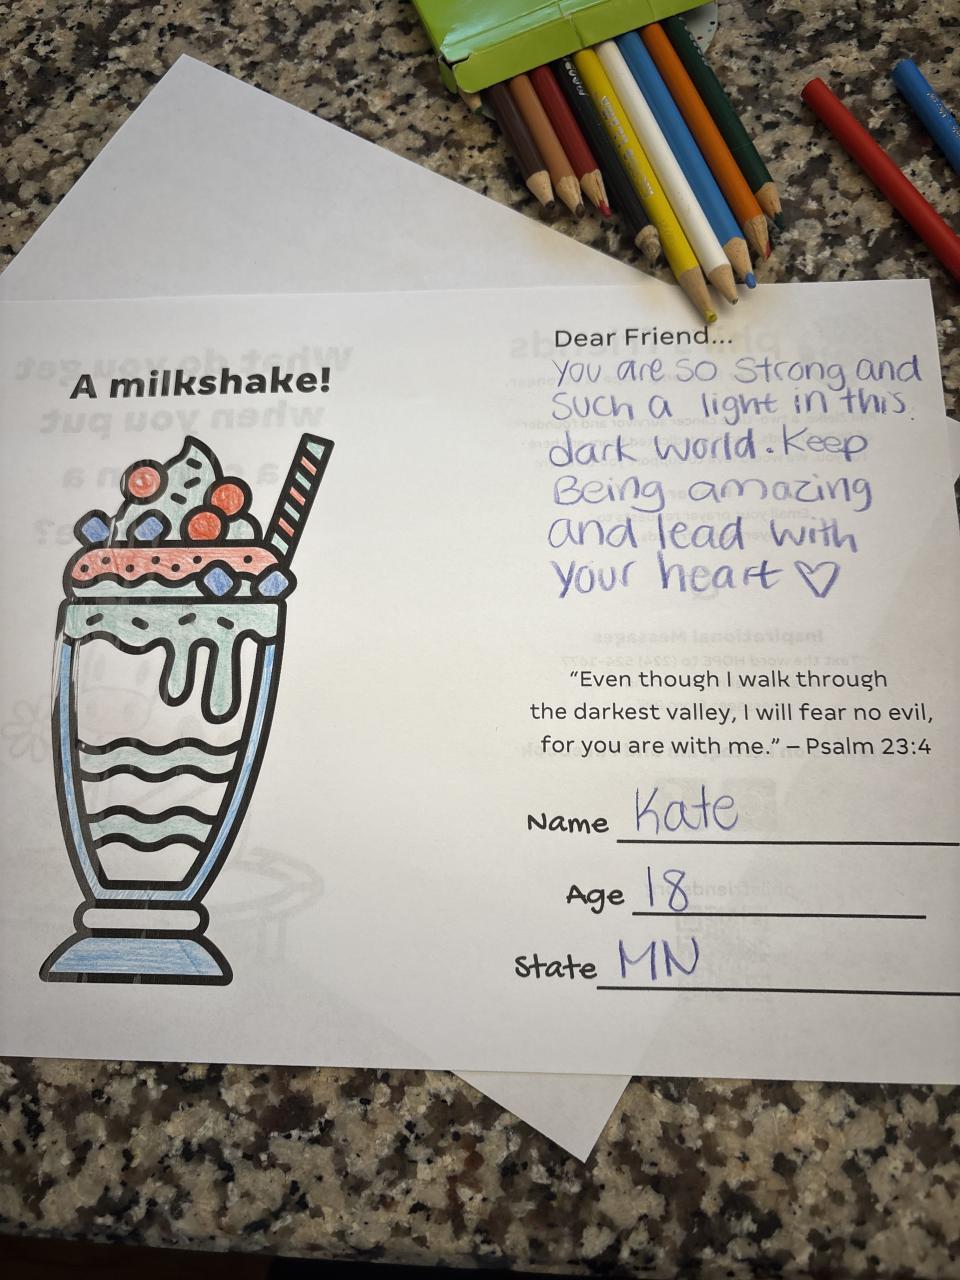 A milkshake!
Dear Friend...
you are so strong and
such a light in this
dark world. Keep
Being amazing
and lead with
your heart ♡
“Even though I walk through
the darkest valley, I will fear no evil,
for you are with me.” – Psalm 23:4
Name Kate
Age 18
State MN